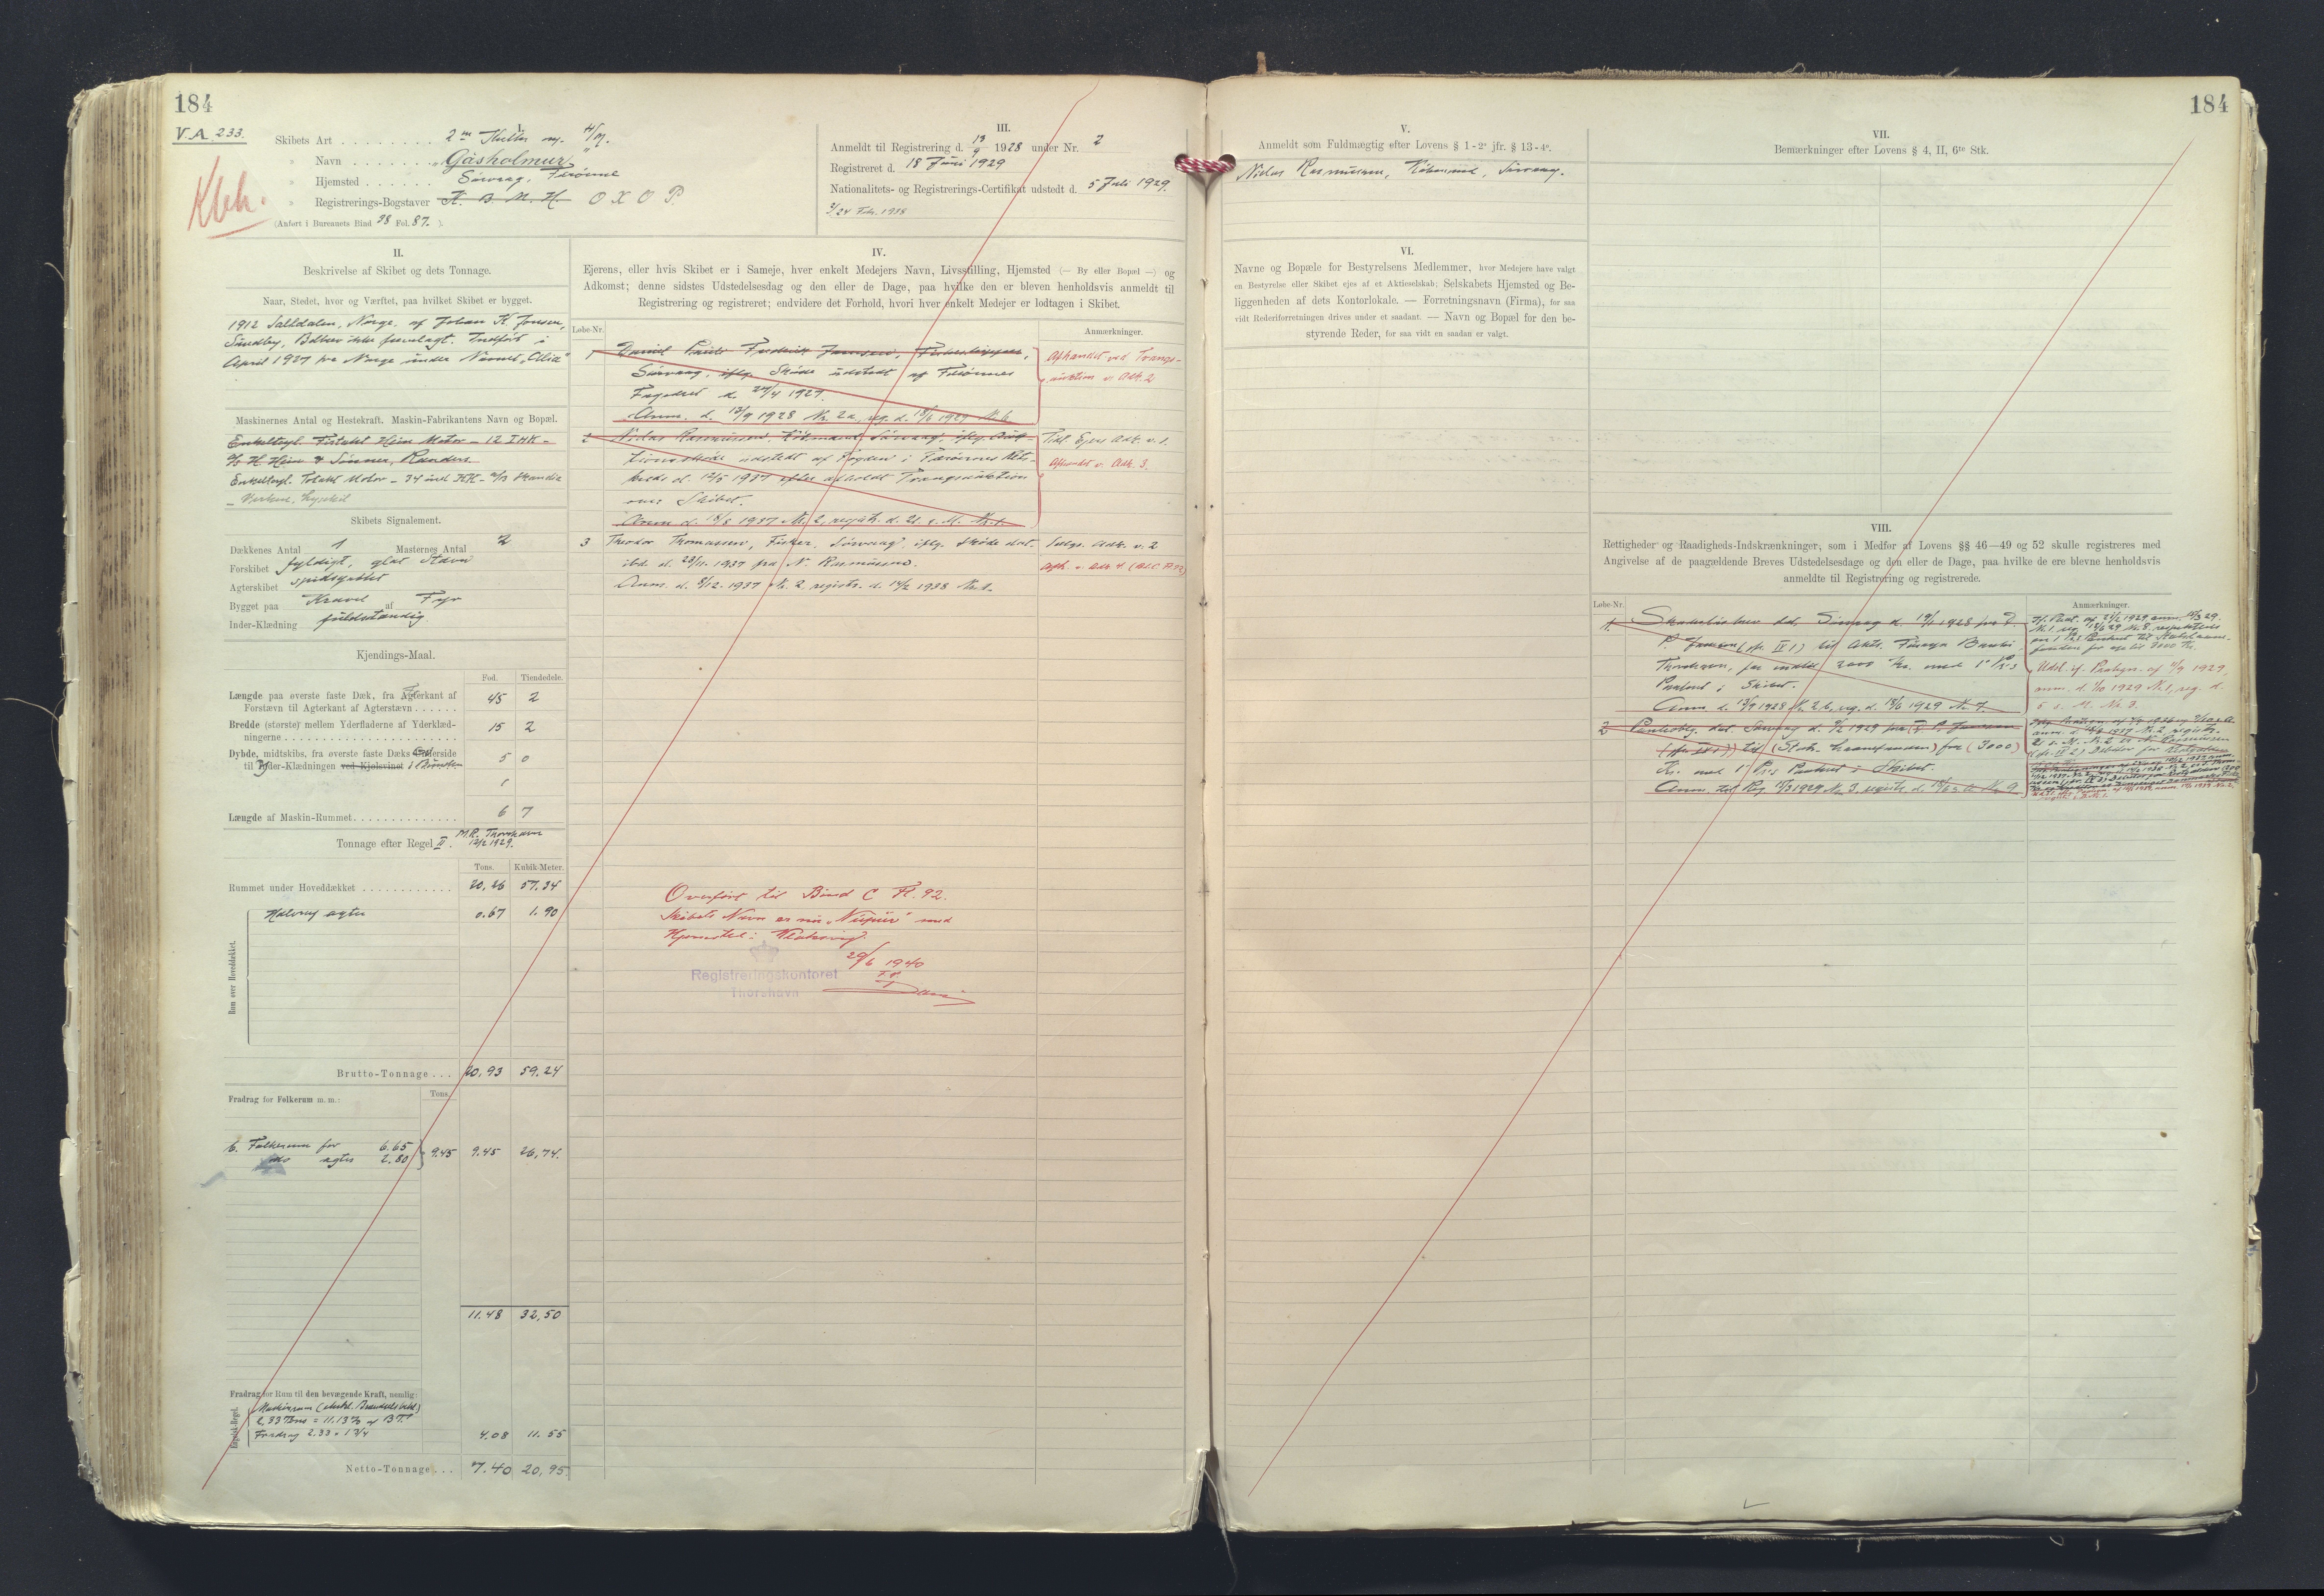 184
V.A. 233.
Klvh.
I.
Skibets Art . . . . . . . . 2 m Kutter m. H/M.
» Navn . . . . . . . „Gásholmur„
» Hjemsted . . . . . . Sørvaag, Færøerne
» Registrerings-Bogstaver K. B. M. H. O X O P.
(Anført i Bureauets Bind 38 Fol. 87. ).
III.
Anmeldt til Registrering d. 13/9 1928 under Nr. 2
Registreret d. 18 Juni 1929
Nationalitets- og Registrerings-Certifikat udstedt d. 5 Juli 1929.
2/24 Feb. 1938
II.
Beskrivelse af Skibet og dets Tonnage.
Naar, Stedet, hvor og Værftet, paa hvilket Skibet er bygget.
1912 Saltdalen, Norge, af Johan K. Jensen,
Sundby, Bilbrev ikke forelagt. Indført i
April 1927 fra Norge under Navnet „Cilia“
Maskinernes Antal og Hestekraft. Maskin-Fabrikantens Navn og Bopæl.
Enkeltcyl. Firtakt Hein Motor – 12 IHK –
A/S H. Hein & Sønner, Randers.
Enkeltcyl. Totakt Motor – 34 ind HK – A/B Skandia
– Verken, Lysekil
Skibets Signalement.
Dækkenes Antal 1 Masternes Antal 2
Forskibet fyldigt, glat Stævn
Agterskibet spidsgattet
Bygget paa Kravel af Fyr
Inder-Klædning fuldstændig
Kjendings-Maal.
Fod. Tiendedele.
Længde paa øverste faste Dæk, fra Agterkant af
Forstævn til Agterkant af Agterstævn . . . . . . 45 2
Bredde (største) mellem Yderfladerne af Yderklæd-
ningerne . . . . . . . . . . . . 15 2
Dybde, midtskibs, fra øverste faste Dæks Underside
til Inder-Klædningen ved Kjølsvinet i Bunden 5 0
Længde af Maskin-Rummet . . . . . . . . 6 7
Tonnage efter Regel II. M.R. Thorshavn
12/2 1929.
Tons. Kubik-Meter.
Rummet under Hoveddækket . . . . . . . . 20,26 57.34
Rum over Hoveddækket.
Halvrug agter 0.67 1.90
Brutto-Tonnage . . . 20,93 59.24
Fradrag for Folkerum m. m.:
Tons.
b. Folkerum for 6.65
do agter 2.80 9.45 9.45 26,74.
11.48 32,50
Fradrag for Rum til den bevægende Kraft, nemlig:
Engelsk-Regel.
Maskinrum
2,33 Tons = 11.13% af B.T.
Fradrag 2.33 × 1 3/4 4.08 11.55
Netto-Tonnage . . . 7.40 20,95
IV.
Ejerens, eller hvis Skibet er i Sameje, hver enkelt Medejers Navn, Livsstilling, Hjemsted (— By eller Bopæl —) og
Adkomst; denne sidstes Udstedelsesdag og den eller de Dage, paa hvilke den er bleven henholdsvis anmeldt til
Registrering og registreret; endvidere det Forhold, hvori hver enkelt Medejer er lodtagen i Skibet.
Løbe-Nr.
Anmærkninger.
1 Daniel Frederik Joensen, Fiskeskipper,
Sørvaag, iflg. Skøde udstedt af Færøernes
Fogedret d. 27/4 1927.
Anm. d. 13/9 1928 Nr. 2a, reg. d. 18/6 1929 Nr. 6
Afhændet ved Tvangs-
auktion v. Adk. 2
2 Niclas Rasmussen, Købmand, Sørvaag, iflg. Auk-
tionsskøde udstedt af Fogden i Færøernes Rets-
kreds d. 12/5 1937 efter afholdt Tvangsauktion
over Skibet.
Anm. d. 18/8 1937 Nr. 2, registr. d. 21. s. M. Nr. 1.
Tidl. Ejers Adk. v. 1.
Afhændet v. Adk. 3.
3 Theodor Thomassen, Fisker, Sørvaag, iflg. Skøde dat.
ibd. d. 23/11 1937 fra N. Rasmussen.
Anm. d. 8/12 1937 Nr. 2 registr. d. 14/2 1938 Nr. 1.
Sælgs. Adk. v. 2
Afh. v. Adk. 4 (Bd. C. Fl. 92)
Overført til Bind C Fl. 92.
Skibets Navn er nu „Núpur“ med
Hjemsted: Klaksvig.
29/6 1940
Registreringskontoret
Thorshavn
184
V.
Anmeldt som Fuldmægtig efter Lovens § 1 - 2° jfr. § 13 - 4°.
Niclas Rasmussen, Købmand, Sørvaag.
VI.
Navne og Bopæle for Bestyrelsens Medlemmer, hvor Medejere have valgt
en Bestyrelse eller Skibet ejes af et Aktieselskab; Selskabets Hjemsted og Be-
liggenheden af dets Kontorlokale. — Forretningsnavn (Firma), for saa
vidt Rederiforretningen drives under et saadant. — Navn og Bopæl for den be-
styrende Reder, for saa vidt en saadan er valgt.
VII.
Bemærkninger efter Lovens § 4, II, 6te Stk.
VIII.
Rettigheder og Raadigheds-Indskrænkninger, som i Medfør af Lovens §§ 46—49 og 52 skulle registreres med
Angivelse af de paagældende Breves Udstedelsesdage og den eller de Dage, paa hvilke de ere blevne henholdsvis
anmeldte til Registrering og registrerede.
Løbe-Nr.
Anmærkninger.
1. Skadesløsbrev dat. Sørvaag d. 19/1 1928 fra D.
P. Joensen (jfr. IV 1) til Akts. Føroya Banki,
Thorshavn, for indtil 2000 Kr. med 1' Pr.s
Panteret i Skibet.
Anm. d. 13/9 1928 Nr. 2b, reg. d. 18/6 1929 Nr. 7.
Udsl. if. Paategn. af 4/9 1929,
anm. d. 1/10 1929 Nr. 1, reg. d.
5 s. M. Nr. 3.
2 Panteoblg. dat. Sørvaag d. 4/2 1929 fra D. P. Joensen
(jfr. IV 1) til (Statens Laanefonden) for (3000)
Kr. med 1' Pr.s Panteret i Skibet.
Anm. til Reg. 15/3 1929 Nr. 3, registr. d. 18/6 s. A. Nr. 9